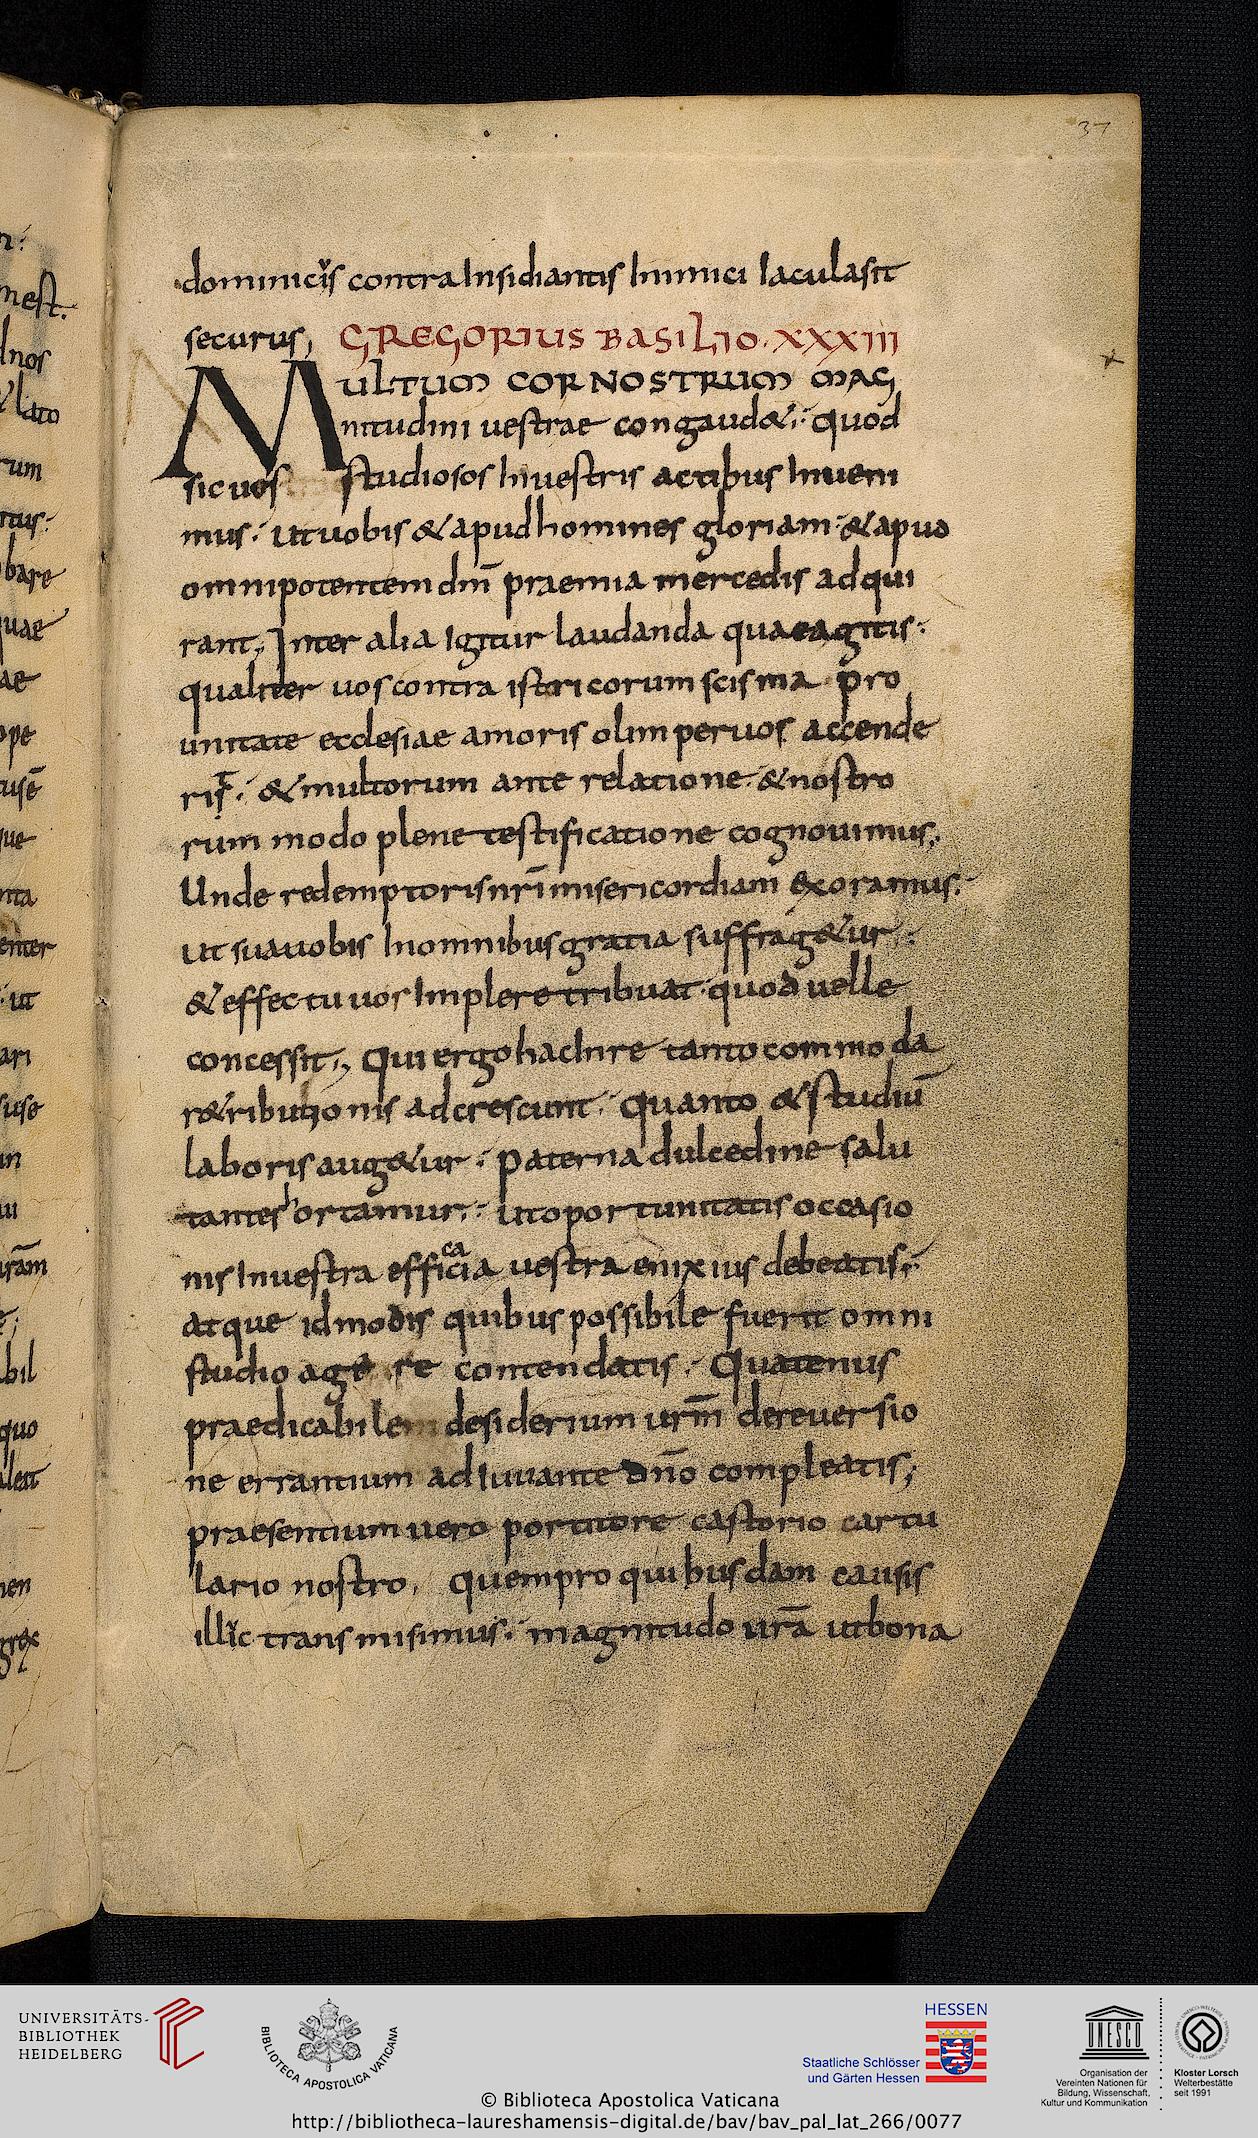 37
dominicis contra insidiantis inimici iaculasit
securus, GREGORIUS BASILIO. XXXIII
MULTUM COR NOSTRUM MAG
nitudini uestrae congaud&; quod
sic uos studiosos inuestris actibus inueni
mus. ut uobis & apud homines gloriam. & apud
omnipotentem dm̄ praemia mercedis adqui
rant; Inter alia igitur laudanda quae agitis.
qualiter uos contra istricorum scisma pro
unitate ecclesiae amoris olim per uos accende
rit. & multorum ante relatione. & nostro
rum modo plene testificatione cognouimus.
Unde redemptoris nr̄i misericordiam exoramus.
ut sua uobis in omnibus gratia suffrag&ur.
& effectu uos implere tribuat. quod uelle
concessit; Qui ergo hac inre tanto commoda
r&ributionis adcrescunt. Quanto & studiū
laboris aug&ur. Paterna dulcedine salu
tantes hortamur. ut oportunitatis occasio
nis inuestra efficacia uestra enixius debeatis.
atque id modis quibus possibile fuerit omni
studio agere contendatis. Quatenus
praedicabilem desiderium ur̄m de reuersio
ne errantium adiuuante dn̄o compleatis;
praesentium uero portitore castorio cartu
lario nostro, quem pro quibusdam causis
illic transmisimus. magnitudo urā ut bona
UNIVERSITÄTS-
BIBLIOTHEK
HEIDELBERG
BIBLIOTECA APOSTOLICA VATICANA
HESSEN
Staatliche Schlösser
und Gärten Hessen
UNESCO
Organisation der
Vereinten Nationen für
Bildung, Wissenschaft,
Kultur und Kommunikation
Kloster Lorsch
Welterbestätte
seit 1991
© Biblioteca Apostolica Vaticana
http://bibliotheca-laureshamensis-digital.de/bav/bav_pal_lat_266/0077